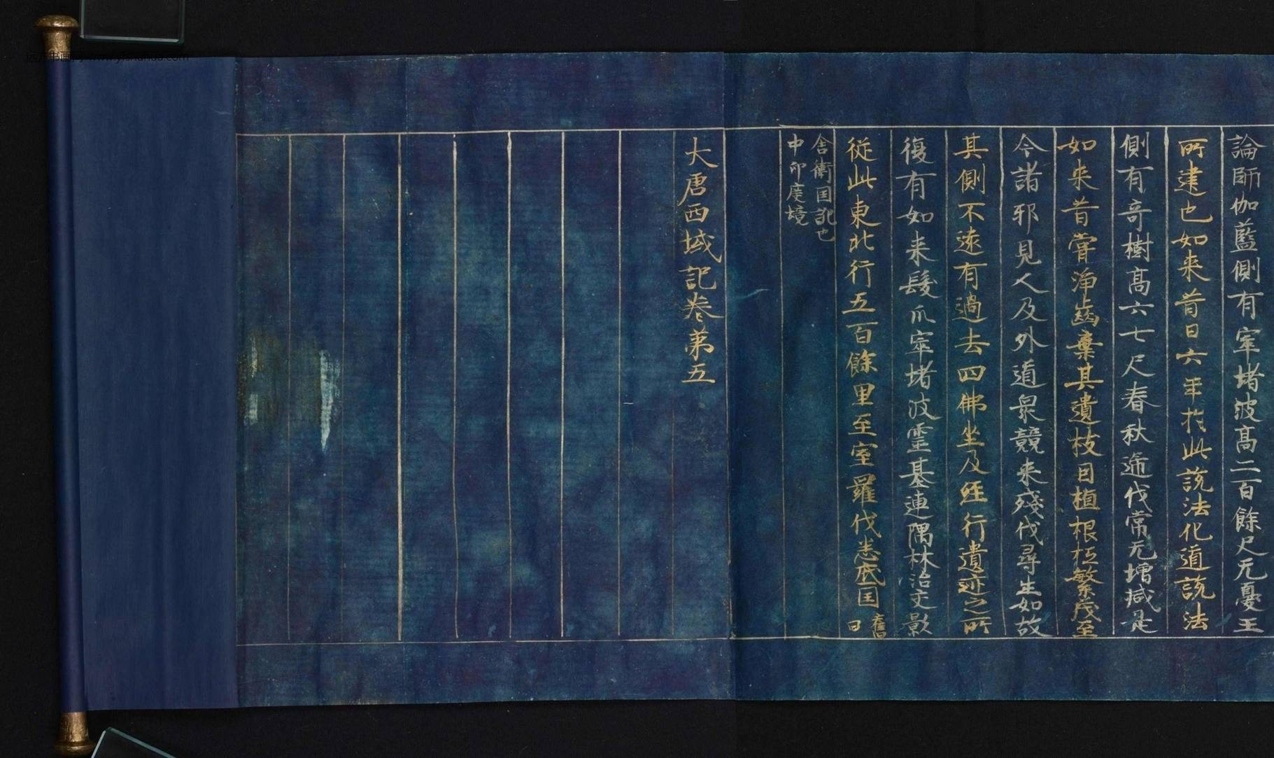 論師伽藍側有窣堵波高二百餘尺无憂王
所建也如来昔日六年於此説法化導説法
側有奇樹高六七尺春秋逓代常无増減是
如来昔甞浄齒棄其遺枝因植根柢繁茂至
今諸邪見人及外道衆競来殘伐尋生如故
其側不遠有過去四佛坐及經行遺迹之所
復有如来髮爪窣堵波靈基連隅林沼交影
従此東北行五百餘里至室羅伐悉底国舊曰
舎衛国訛也
中印度境
大唐西域記巻第五